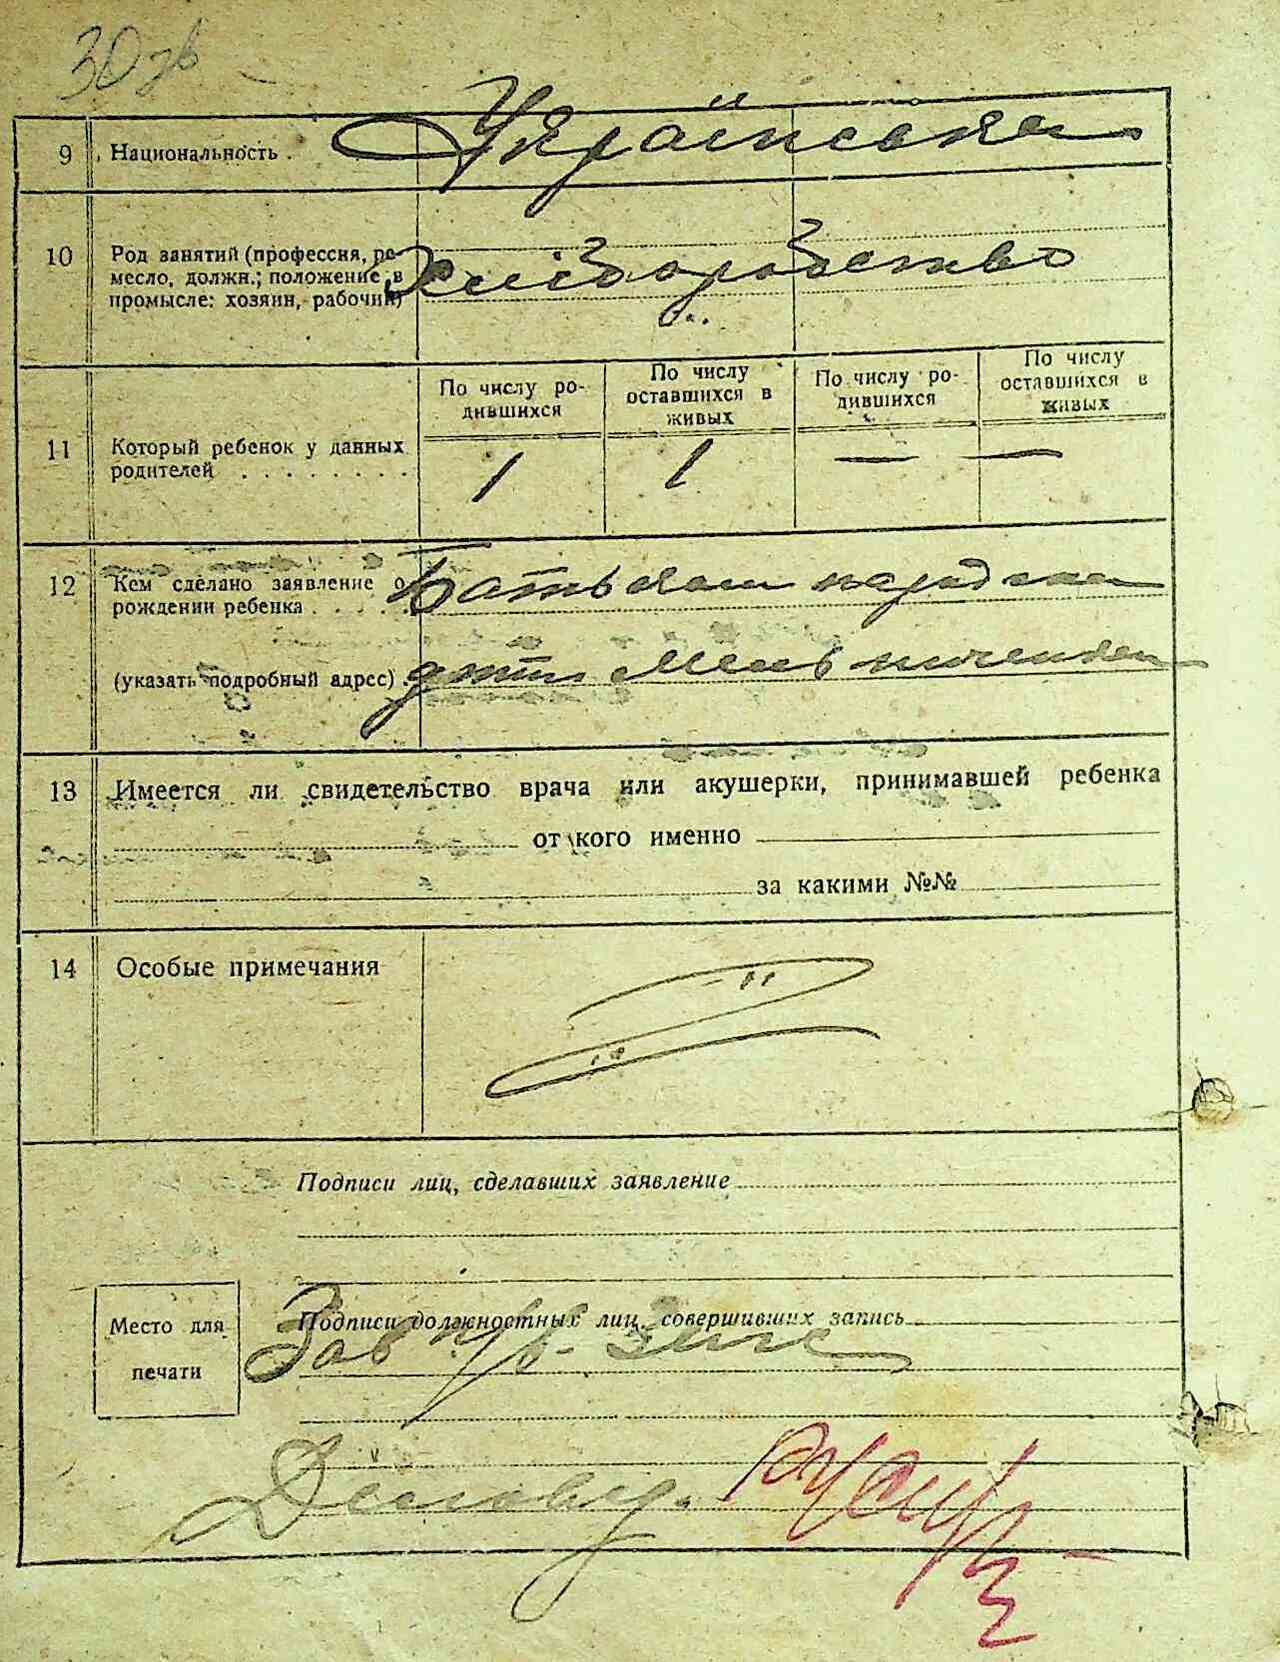 30 зв
9 Национальность . Українська
10 Род занятий (профессия, ре-
месло, должн.; положение в
промысле: хозяин, рабочий)
Хліборобство
11 Который ребенок у данных
родителей . . . . . . . .
По числу ро-
дившихся
По числу
оставшихся в
живых
По числу ро-
дившихся
По числу
оставшихся в
живых
1 1 — —
12 Кем сделано заявление о
рождении ребенка . . . . .
Батьком
(указать подробный адрес) .
13 Имеется ли свидетельство врача или акушерки, принимавшей ребенка
от кого именно
за какими №№
14 Особые примечания
Подписи лиц, сделавших заявление
Подписи должностных лиц, совершивших запись
Место для
печати
Зав
Діловод.